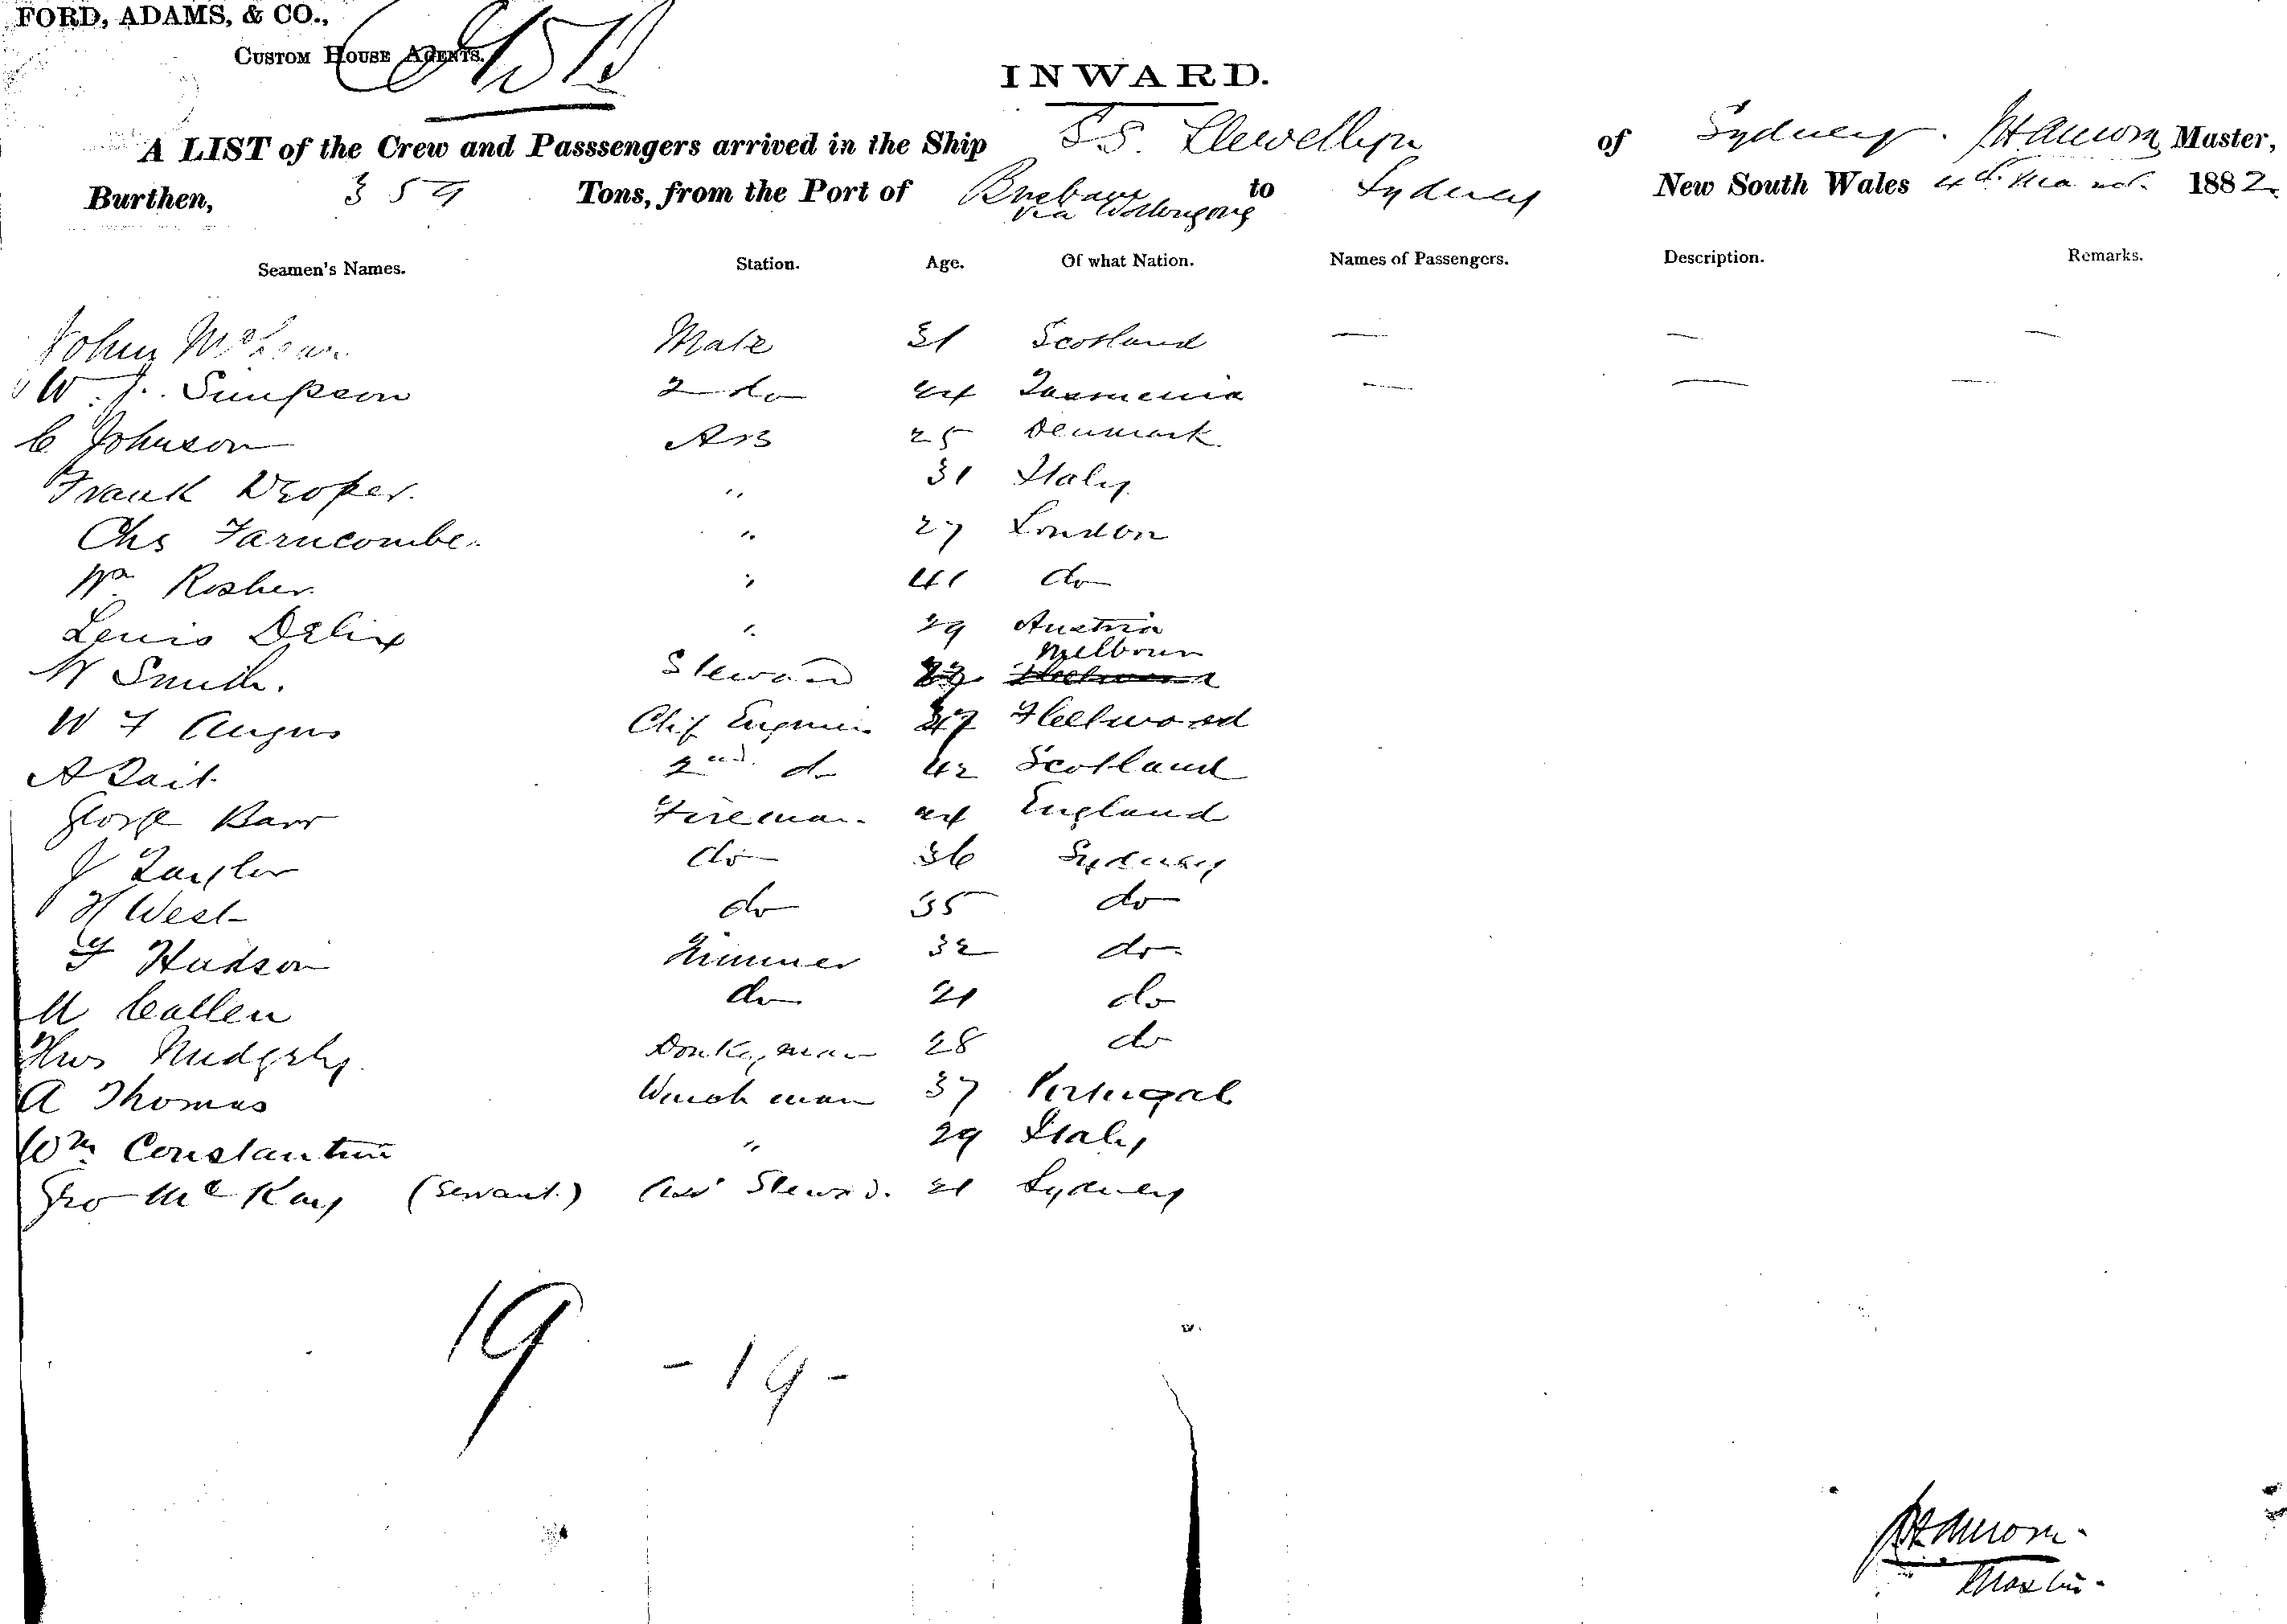 FORD, ADAMS, & CO.,
CUSTOM HOUSE AGENTS.
INWARD.
A LIST of the Crew and Passsengers arrived in the Ship SS. Llewellyn of Sydney. Master,
Burthen, 359 Tons, from the Port of Brisbane via Wollongong to Sydney New South Wales 4th March 1882
Seamen's Names. Station. Age. Of what Nation. Names of Passengers. Description. Remarks.
John McLean Mate 31 Scotland — — —
W. J. Simpson 2 do 24 Tasmania — — —
C Johnson AB 25 Denmark
Frank " 31 Italy
Chs Farncombe " 27 London
Wm Rosher " 41 do
Lewis Delix " 29 Austria
W Smith. Steward Melbourn
W F Angus Chif Engineer Fleetwood
A Tait 2nd do 42 Scotland
George Barr Fireman 24 England
J Taylor do 36 Sydney
H West do 35 do
Hudson Trimmer 32 do
M Callen do 21 do
Thos Midgely Donkeyman 28 do
A Thomas Winch man 37 Portugal
Wm Constantine " 29 Italy
Geo McKay (Servant.) Ass Steward. 21 Sydney
19 - 19 -
Master